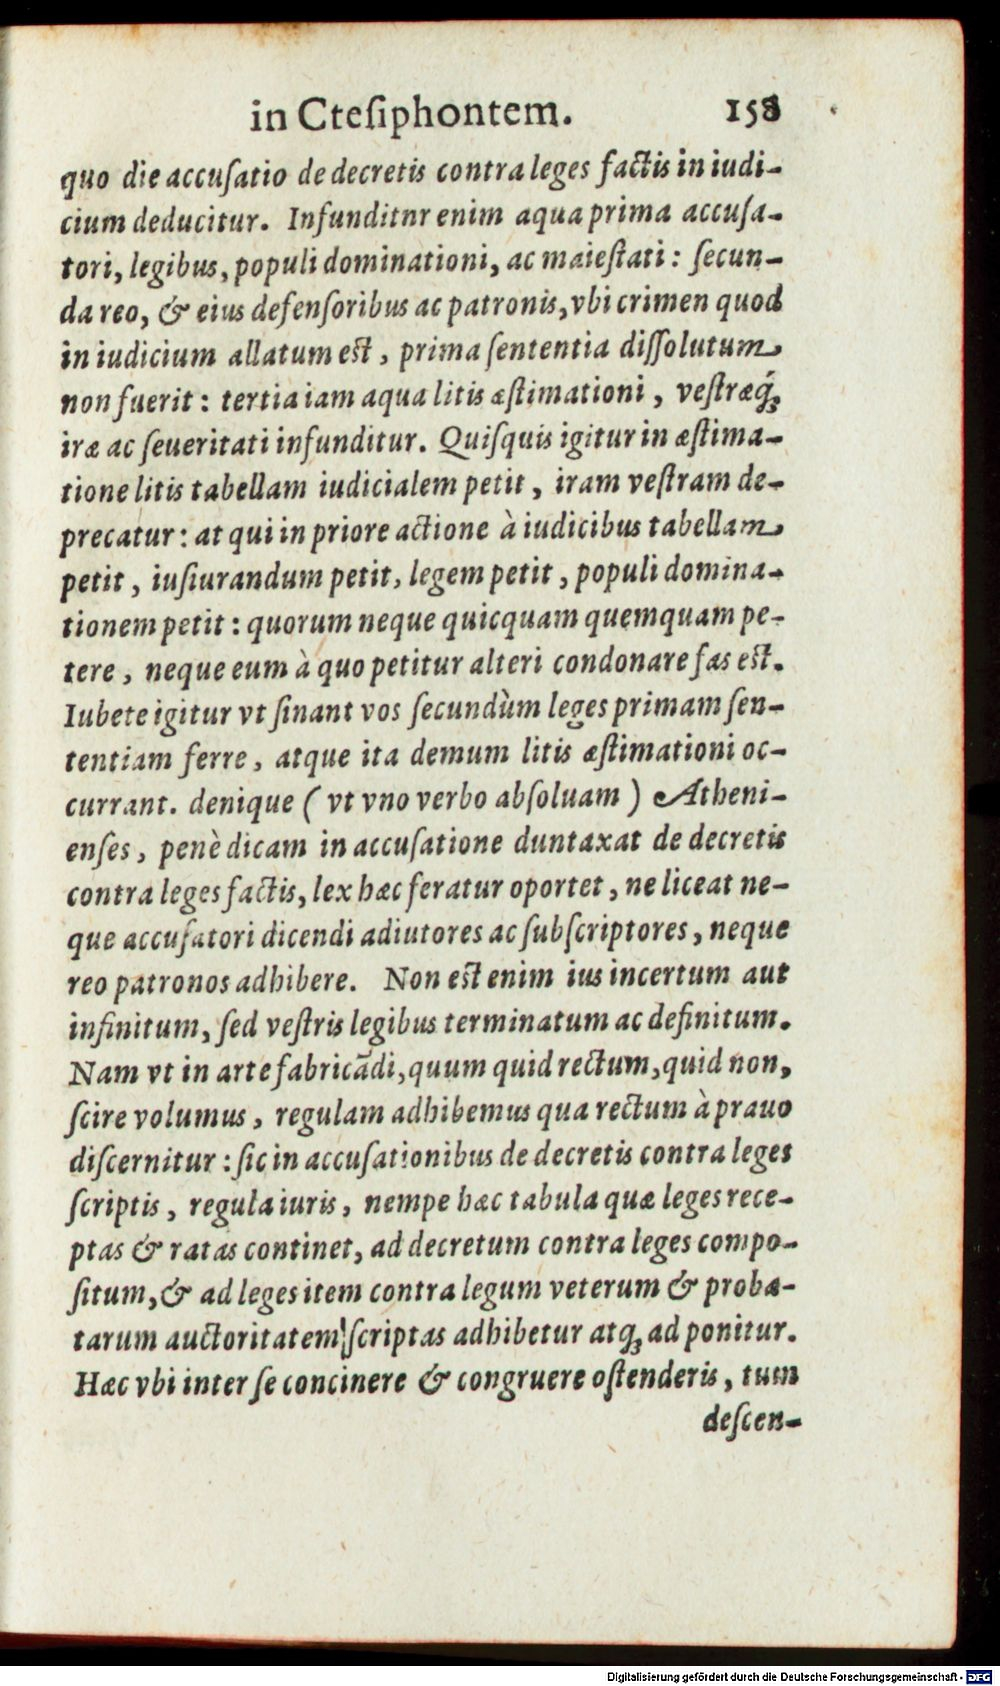 in Cteſiphontem. 158
quo die accuſatio de decretis contra leges factis in iudi-
cium deducitur. Infunditnr enim aqua prima accuſa-
tori, legibus, populi dominationi, ac maieſtati: ſecun-
da reo, & eius defenſoribus ac patronis, vbi crimen quod
in iudicium allatum est, prima ſententia diſſolutum
non fuerit: tertia iam aqua litis æſtimationi, veſtræq́;
iræ ac ſeueritati infunditur. Quiſquis igitur in æſtima-
tione litis tabellam iudicialem petit, iram veſtram de-
precatur: at qui in priore actione à iudicibus tabellam
petit, iuſiurandum petit, legem petit, populi domina-
tionem petit: quorum neque quicquam quemquam pe-
tere, neque eum à quo petitur alteri condonare fas est.
Iubete igitur vt ſinant vos ſecundùm leges primam ſen-
tentiam ferre, atque ita demum litis æſtimationi oc-
currant. denique ( vt vno verbo abſoluam ) Atheni-
enſes, penè dicam in accuſatione duntaxat de decretis
contra leges factis, lex hæc feratur oportet, ne liceat ne-
que accuſatori dicendi adiutores ac ſubſcriptores, neque
reo patronos adhibere. Non est enim ius incertum aut
infinitum, ſed veſtris legibus terminatum ac definitum.
Nam vt in arte fabricādi, quum quid rectum, quid non,
ſcire volumus, regulam adhibemus qua rectum à prauo
diſcernitur: ſic in accuſationibus de decretis contra leges
ſcriptis, regula iuris, nempe hæc tabula quæ leges rece-
ptas & ratas continet, ad decretum contra leges compo-
ſitum, & ad leges item contra legum veterum & proba-
tarum auctoritatem ſcriptas adhibetur atq; ad ponitur.
Hæc vbi inter ſe concinere & congruere oſtenderis, tum
deſcen-
Digitalisierung gefördert durch die Deutsche Forschungsgemeinschaft - DFG